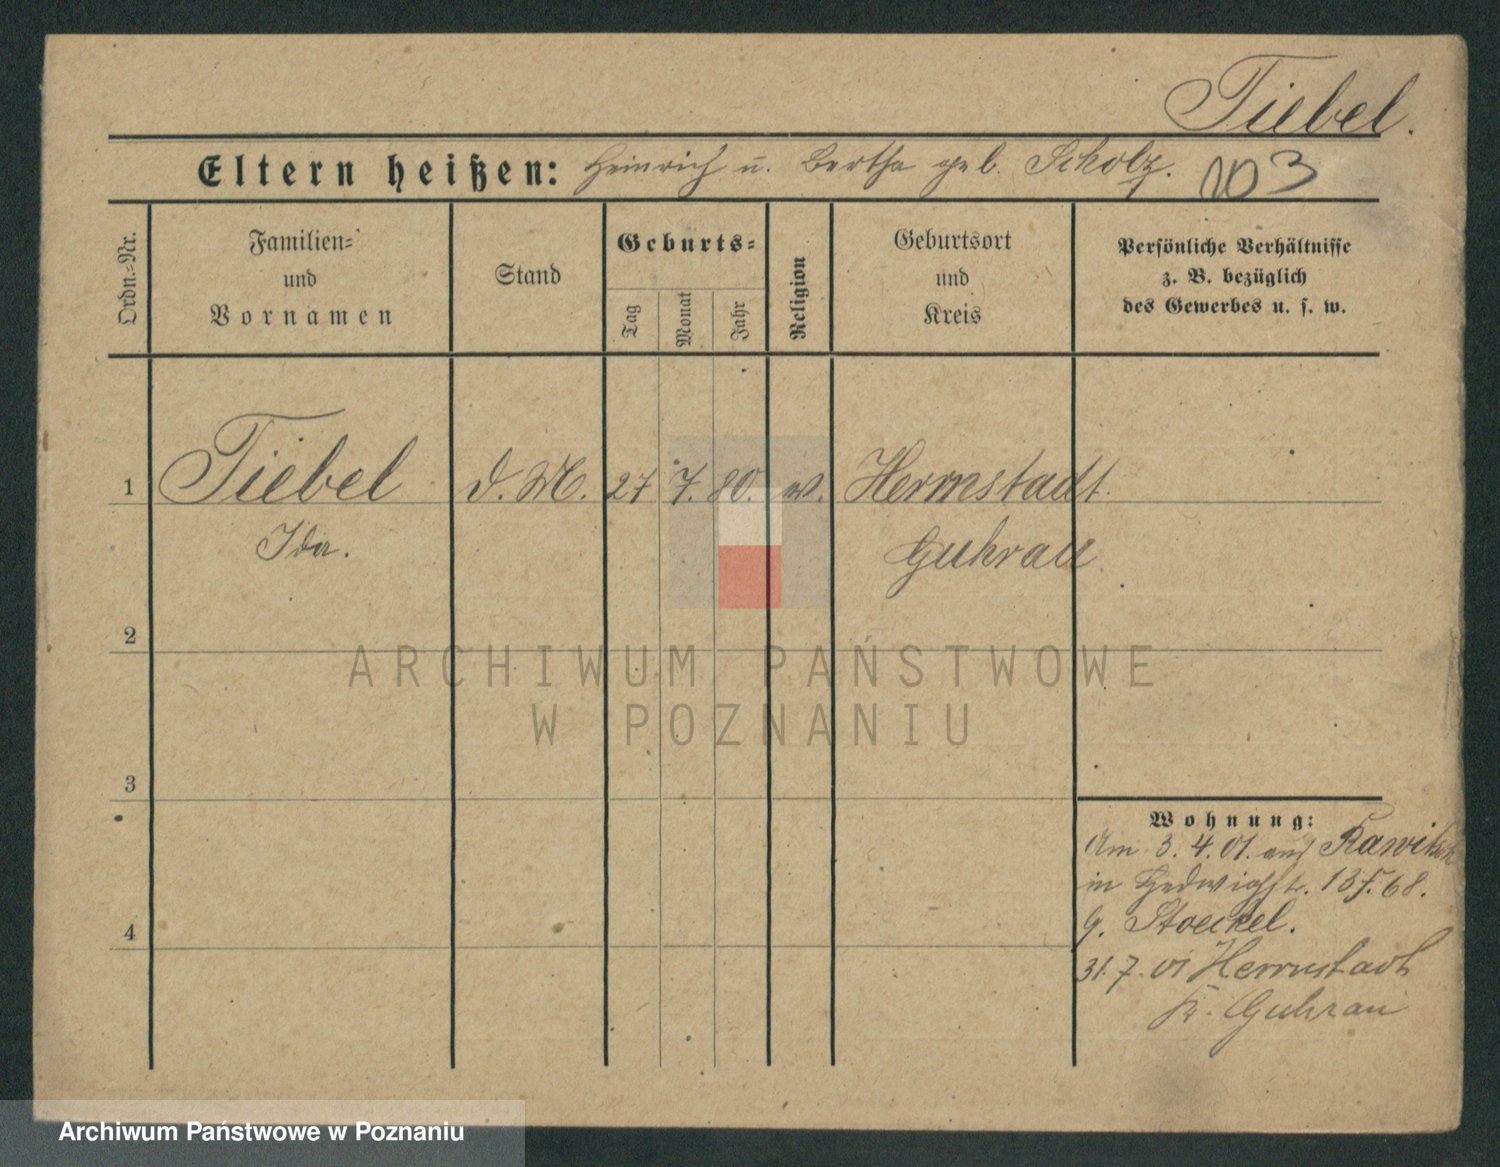 Tiebel.
Eltern heißen: Heinrich u. Bertha geb. Scholz. 103
Ordn.=Nr.
Familien=
und
Vornamen
Stand
Geburts=
Tag
Monat
Jahr
Religion
Geburtsort
und
Kreis
Persönliche Verhältnisse
z. B. bezüglich
des Gewerbes u. s. w.
1 Tiebel d. M. 27 7. 80. ev. Herrnstadt
Ida. Guhrau
2
3
4
Wohnung:
Am 3. 4. 01. aus Rawitsch
in Hedwigstr. 68.
b. Stoeckel.
31. 7. 01 Herrnstadt
Kr. Guhrau
ARCHIWUM PAŃSTWOWE
W POZNANIU
Archiwum Państwowe w Poznaniu